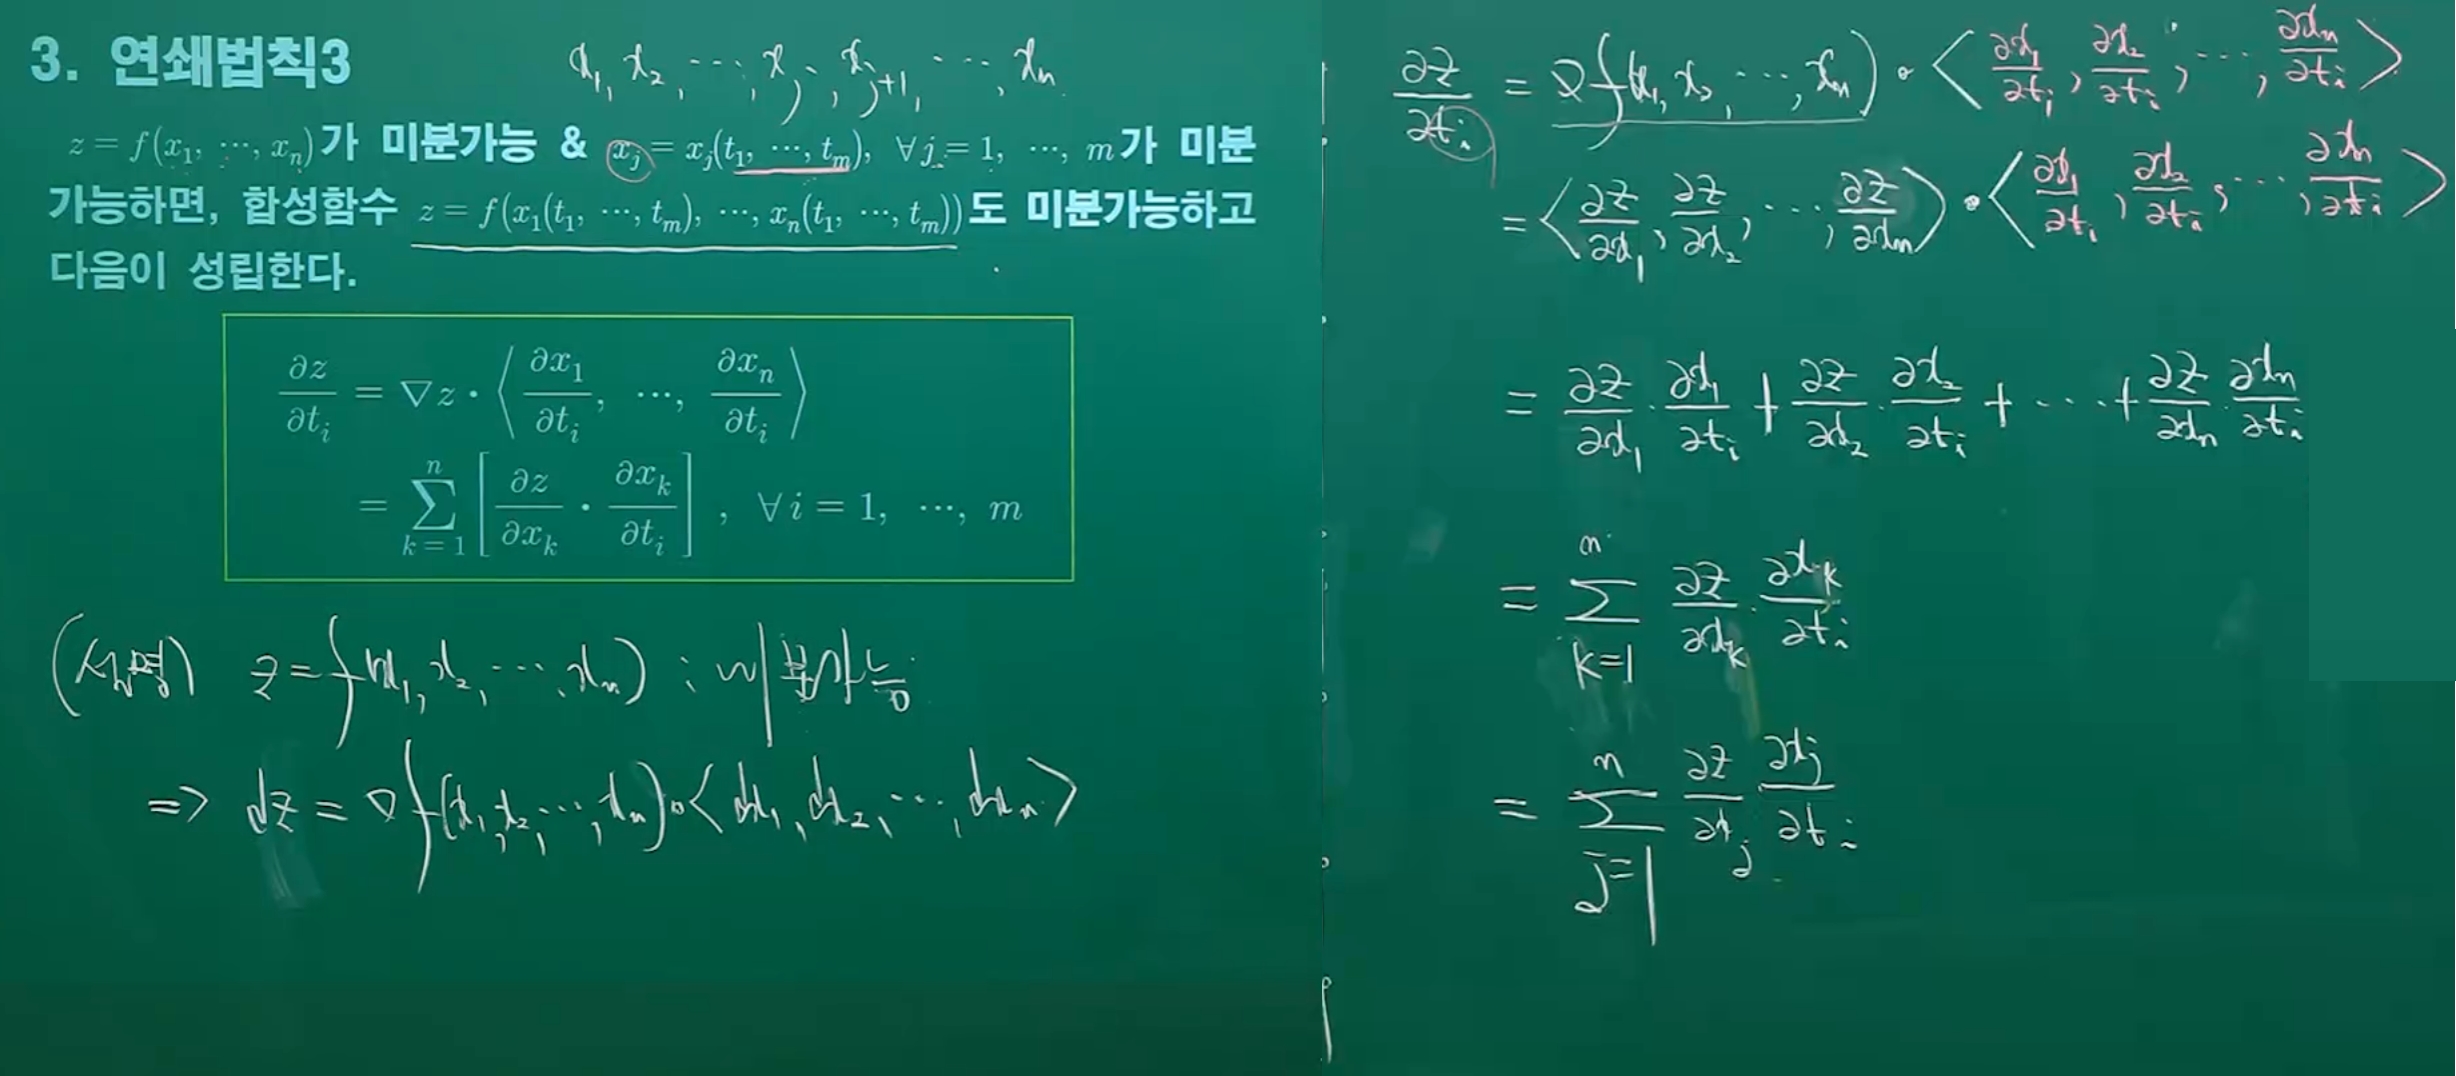 3. 연쇄법칙3
x₁, x₂, ⋯, xⱼ, xⱼ₊₁, ⋯, xₙ
z = f(x₁, ⋯, xₙ)가 미분가능 & xⱼ = xⱼ(t₁, ⋯, tₘ), ∀j = 1, ⋯, m가 미분
가능하면, 합성함수 z = f(x₁(t₁, ⋯, tₘ), ⋯, xₙ(t₁, ⋯, tₘ))도 미분가능하고
다음이 성립한다.
∂z/∂tᵢ = ∇z · ⟨∂x₁/∂tᵢ, ⋯, ∂xₙ/∂tᵢ⟩
= ∑ₖ₌₁ⁿ [∂z/∂xₖ · ∂xₖ/∂tᵢ], ∀i = 1, ⋯, m
(설명) z = f(x₁, x₂, ⋯, xₙ) : 미분가능
=> dz = ∇f(x₁, x₂, ⋯, xₙ)·⟨dx₁, dx₂, ⋯, dxₙ⟩
∂z/∂tᵢ = ∇f(x₁, x₂, ⋯, xₙ) · ⟨∂x₁/∂tᵢ, ∂x₂/∂tᵢ, ⋯, ∂xₙ/∂tᵢ⟩
= ⟨∂z/∂x₁, ∂z/∂x₂, ⋯, ∂z/∂xₙ⟩ · ⟨∂x₁/∂tᵢ, ∂x₂/∂tᵢ, ⋯, ∂xₙ/∂tᵢ⟩
= ∂z/∂x₁ · ∂x₁/∂tᵢ + ∂z/∂x₂ · ∂x₂/∂tᵢ + ⋯ + ∂z/∂xₙ · ∂xₙ/∂tᵢ
= ∑ₖ₌₁ⁿ ∂z/∂xₖ · ∂xₖ/∂tᵢ
= ∑ⱼ₌₁ⁿ ∂z/∂xⱼ ∂xⱼ/∂tᵢ